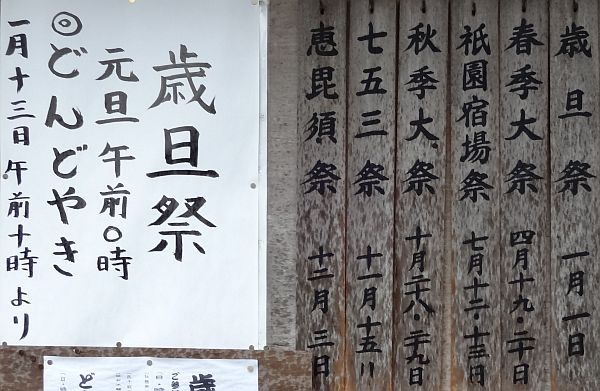 歳旦祭 一月一日
春季大祭 四月十九・二十日
祇園宿場祭 七月十二・十三日
秋季大祭 十月二八・二九日
七五三祭 十一月十五日
恵毘須祭 十二月三日
歳旦祭
元旦午前〇時
◎どんどやき
一月十三日午前十時より
歳
ど